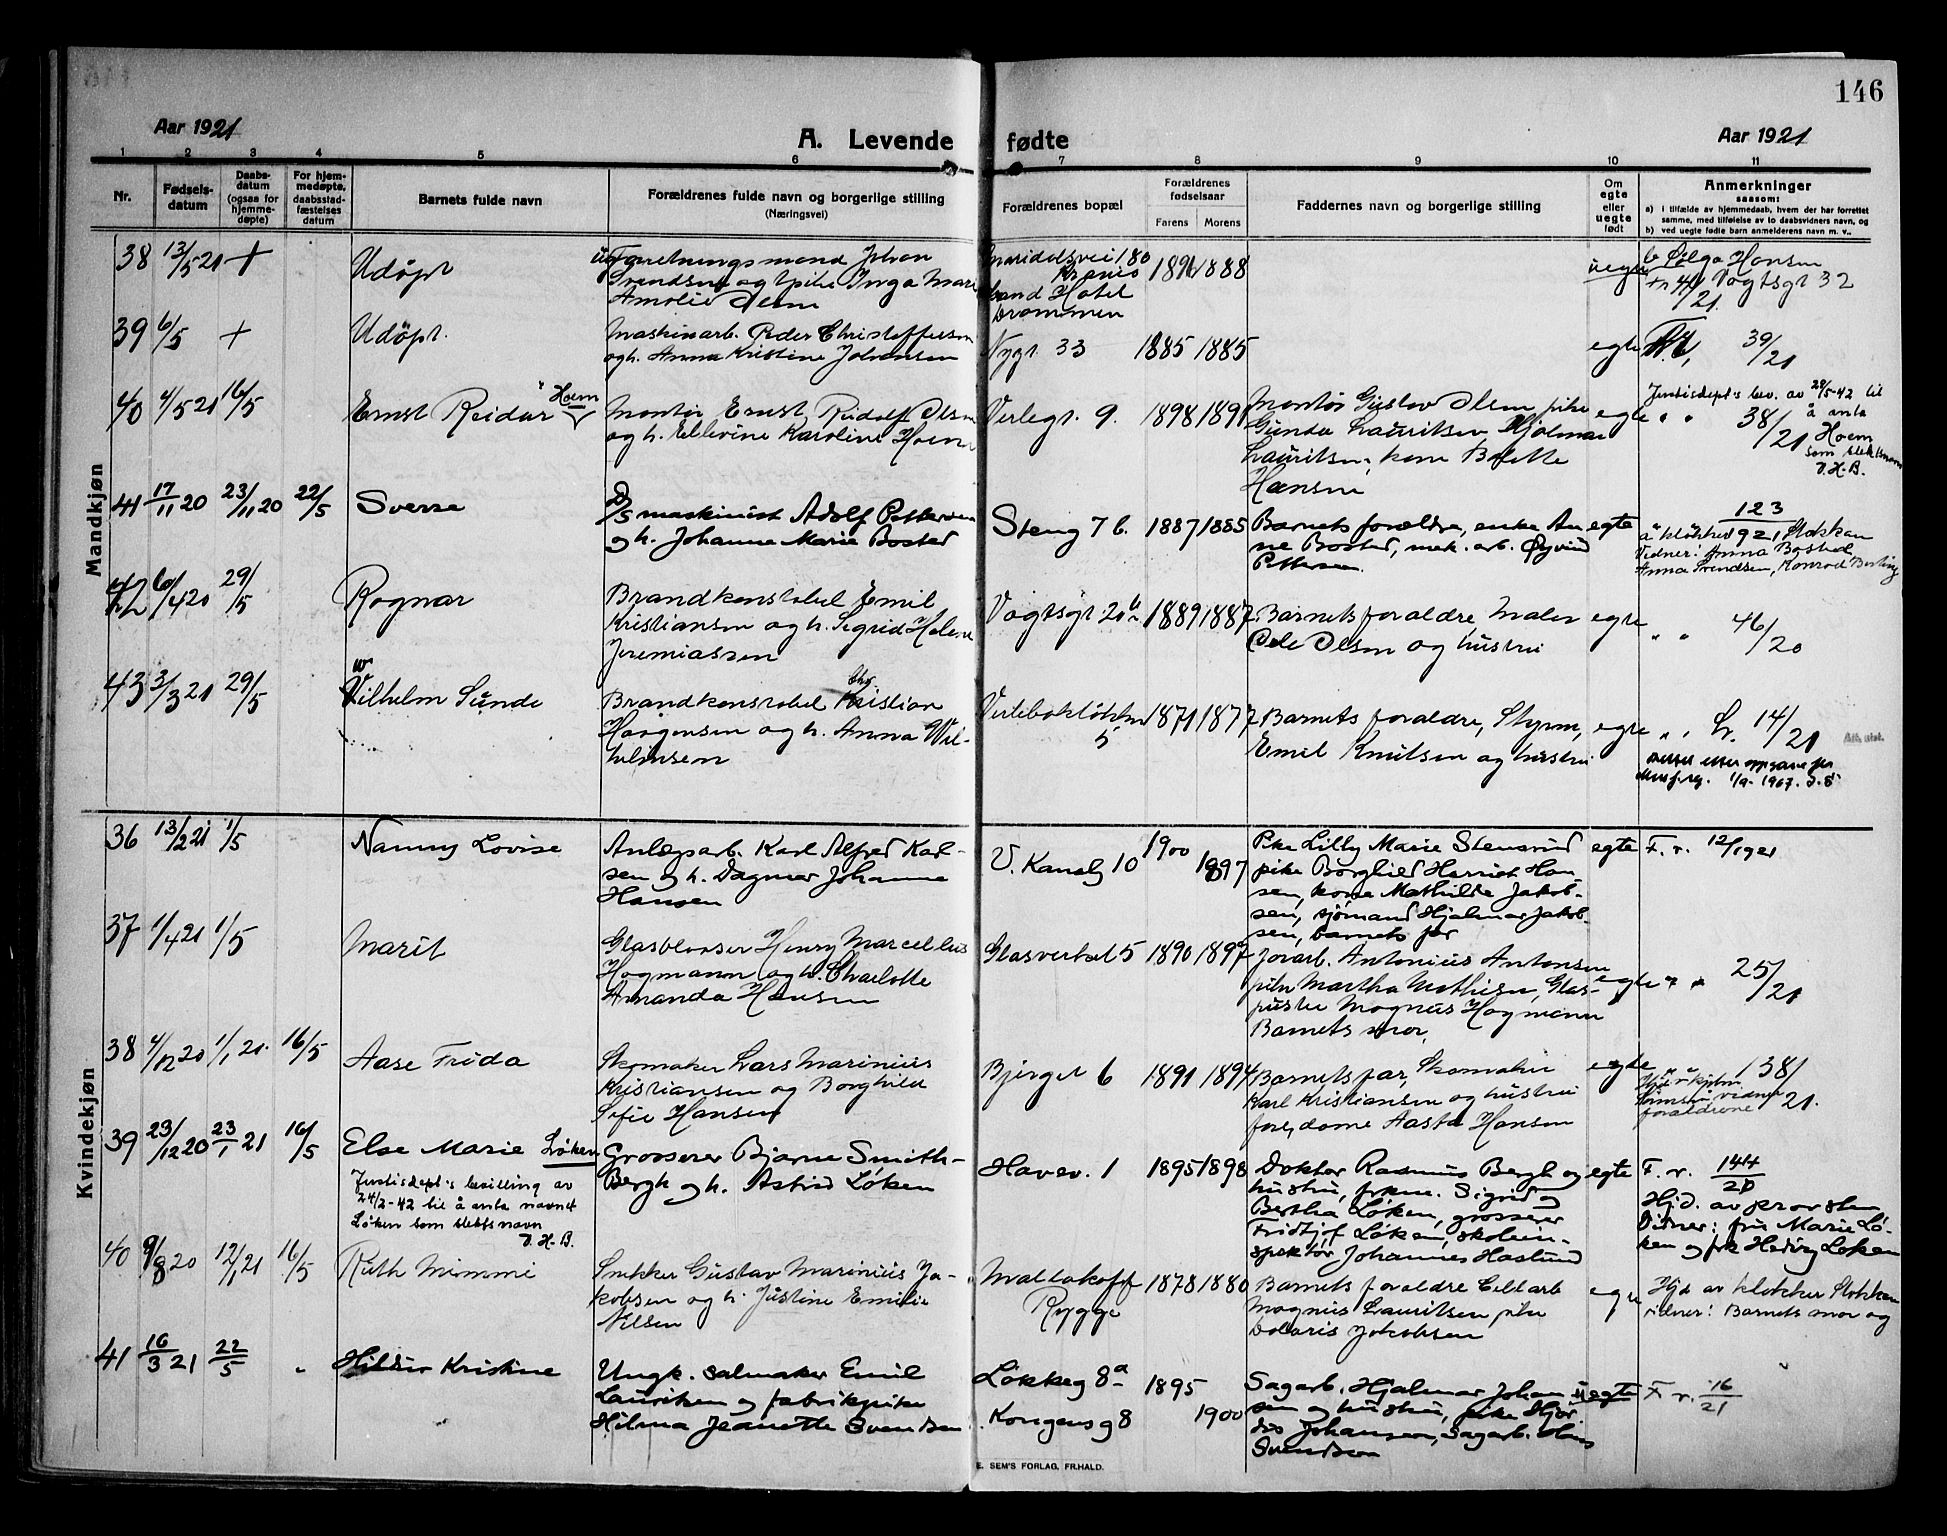 146
Aar 1921
A. Levende fødte
Aar 1921
1 2 3 4 5 6 7 8 9 10 11
Nr.
Fødsels-
datum
Daabs-
datum
(ogsaa for
hjemme-
døpte)
For hjem-
medøpte,
daabsstad-
fæstelses
datum
Barnets fulde navn
Forældrenes fulde navn og borgerlige stilling
(Næringsvei)
Forældrenes bopæl
Forældrenes
fødselsaar
Farens Morens
Faddernes navn og borgerlige stilling
Om
egte
eller
uegte
født
Anmerkninger
saasom:
a) i tilfælde av hjemmedaab, hvem der har forrettet
samme, med tilføielse av to daabsvidners navn, og
b) ved uegte fødte barn anmelderens navn m. v..
Mandkjøn
38 13/5 21 +
Udöpt
Forretningsmand Johan
Svendsen og pike Inga Marie
Amalie Olsen
Maridalsvei 180
Kra
Hotel
Drammen
1896 1888
uegte
Olga Hansen
Vogtsgt 32
39 6/5 +
Udöpt.
Maskinarb. Peder Christoffersen
og h. Anna Kristine Johansen
Nygt. 33
1885 1885
egte
39/21
40 4/5 21 16/5
Ernst Reidar Hoem
Montör Ernst Rudolf Olsen
og h. Ellevine Karoline Hoem
Verlegt. 9.
1898 1891
Montör Gustav Olsen, pike
Gunda Lauritsen, Hjalmar
Lauritsen, kone Bolette
Hansen
egte
Justisdept's bev. av 28/5-42 til
å anta
38/21 Hoem
som slektsnavn
T.H.B.
41 17/11 20 23/11 20 22/5
Sverre
D/S maskinist Adolf Pettersen
og h. Johanne Marie Bosted
Steng 7 b.
1887 1885
Barnets forældre, enke An-
ne Bosted, mek. arb. Øyvind
Pettersen.
egte
123
921
Vidner: Anna Bosted,
Anna Svendsen, Konrad
42 6/4 20 29/5
Ragnar
Brandkonstabel Emil
Kristiansen og h. Sigrid Helene
Jeremiassen
Vogtsgt 20 b
1889 1887
Barnets foraldre, Maler
Ole Olsen og hustru
egte
" " 46/20
43 3/3 21 29/5
Vilhelm Sunde
W
Brandkonstabel Kristian
Chr.
Horgensen og h. Anna Wil-
helmsen
5
1871 1877
Barnets foraldre, Styrm,
Emil Knutsen og hustru
egte
14/21
rettet etter oppgave fra
1/9-1967.
Kvindekjøn
36 13/2 21 1/5
Nanny Lovise
Anlægsarb. Karl Alfred Karl-
sen og h. Dagmar Johanne
Hansen
V. Kanalg 10
1900
1897
Pike Lilly Marie Stensrud
pike Borghild Harriet Han-
sen, kone Mathilde Jakob-
sen, sjömand Hjalmar Jakob-
sen, barnets far
egte
F. r. 12/1921
37 1/4 21 1/5
Marit
Glasblaaser Henry Marcellius
Hagmann og h. Charlotte
Amanda Hansen
Glasverket 5
1890 1897
Jorarb. Antonius Antonsen
pike Martha Mathisen, Glas-
puster Magnus Hagmann
Barnets mor.
egte
" " 25/21
38 4/12 20 1/1 21. 16/5
Aase Frida
Skomaker Lars Marinius
Kristiansen og Borghild
Sofie Hansen
Bjerget 6
1891 1894
Barnets far, Skomaker
Karl Kristiansen og hustru
fore, dame Aasta Hansen
egte
138/21.
vidner
foraldrene
39 23/12 20 23/1 21 16/5
Else Marie Løken
Justisdept's bevilling av
24/2-42 til å anta navnet
Løken som slektsnavn
T.H.B.
Grosserer Bjarne Smith-
Bergh og h. Astrid Løken
Havev. 1
1895 1898
Doktor Rasmus Bergh og
hustru, frkne. Sigrid og
Bertha Løken, grosserer
Fridtjof Løken, skolein-
spektör Johannes Haslund
egte
F. r. 144/21
Hjd. av provsten
Vidner: fru Marie Lø-
ken og frk Hedvig Løken
40 9/8 20 12/1 21 16/5
Ruth Mimmi
Snekker Gustav Marinius Ja-
kobsen og h. Justine Emilie
Nilsen
Mallakoff
Rygge
1878 1880
Barnets foraldre Celt arb
Magnus Lauritsen, pike
Dolaris Jakobsen
egte
Hjd av klokker Stokkan
vidner: Barnets mor og
41 16/3 21 22/5 "
Hildur Kristine
Ungk. salmaker Emil
Lauritzen og fabrikpike
Hilma Jeanette Svendsen
Løkkeg 8a
Kongensg 8
1895
1900
Sagarb. Hjalmar Johan-
sen og hustru, pike Hjör-
dis Johansen, Sagarb. Hans
Svendsen
uegte
F. r. 16/21
E. SEM'S FORLAG, FR.HALD.